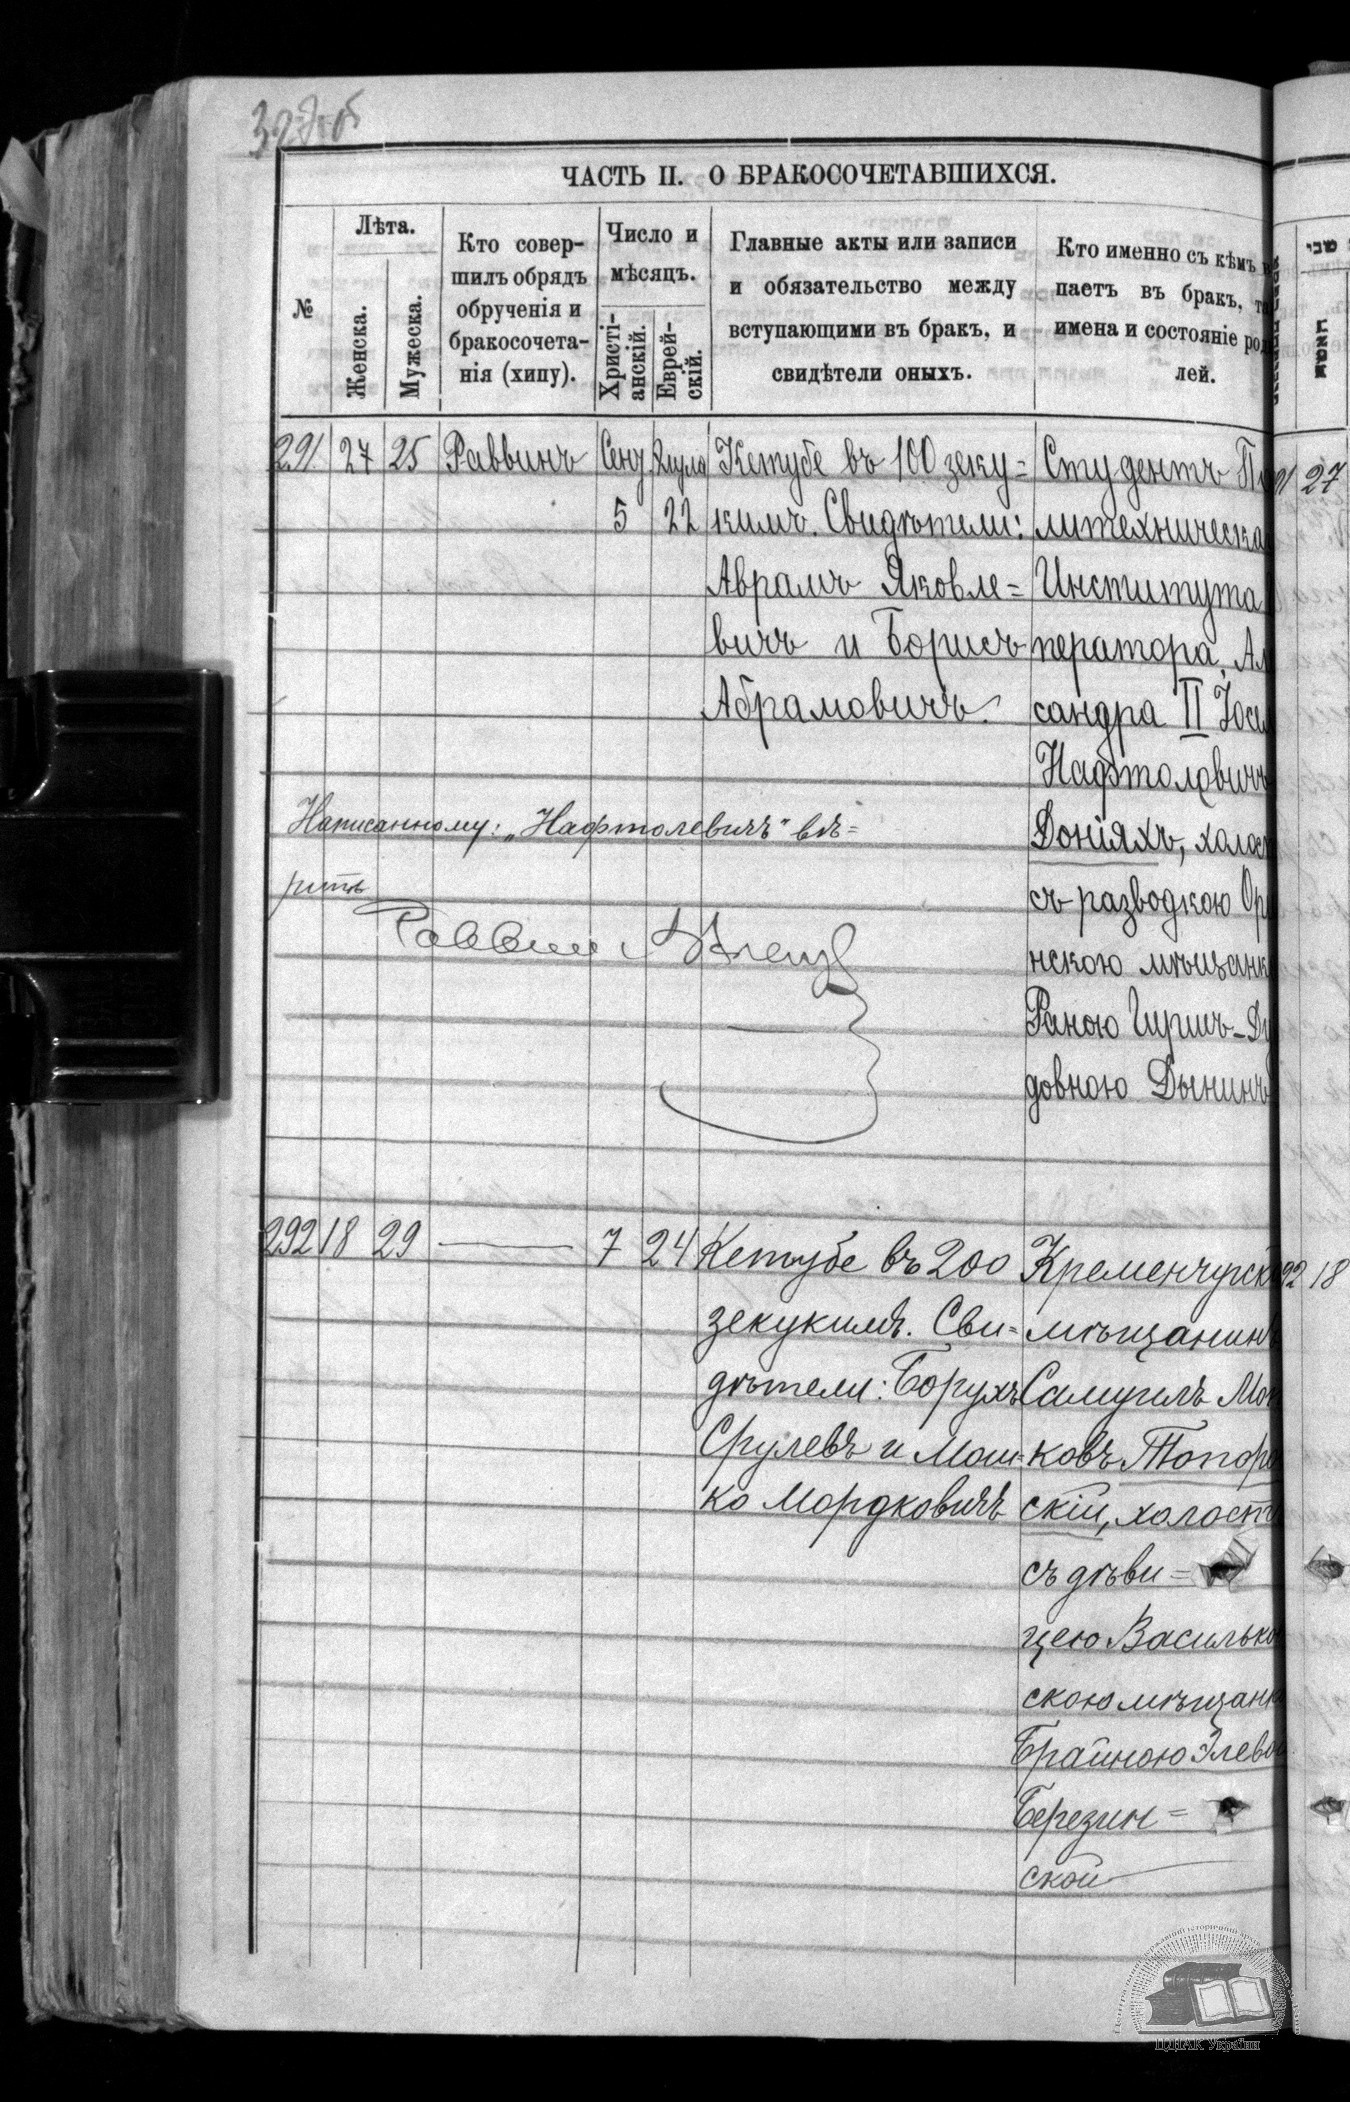 ЧАСТЬ II. О БРАКОСОЧЕТАВШИХСЯ.
№
Лѣта.
Женска.
Мужеска.
Кто совер-
шилъ обрядъ
обрученія и
бракосочета-
нія (хипу).
Число и
мѣсяцъ.
Христі-
анскій.
Еврей-
скій.
Главные акты или записи
и обязательство между
вступающими въ бракъ, и
свидѣтели оныхъ.
Кто именно съ кѣмъ в
паетъ въ бракъ, та
имена и состояніе род
лей.
291. 27 25 Раввинъ
5 22
Кетубе въ 100 зеку=
кимъ. Свидѣтели:
Аврамъ Яковле=
вичъ и Борисъ
Абрамовичъ.
Студентъ По
литехническа
Института
ператора Ал
сандра II Іоси
Нафтоловичъ
Доніяхъ, холост
съ разводкою Ор
нскою мѣщанк
Раною Гиршъ-Ду
довною Дынинъ
Написанному: „Нафтолевичъ" вѣ=
рить
Раввин
292 18 29 — 7 24
Кетубе въ 200
зекукимъ. Сви=
дѣтели: Борухъ
Срулевъ и Мош-
ко Мордковичъ
Кременчугскі
мѣщанинъ
Самуилъ Мош
ковъ Топоро
скій, холосты
съ дѣви=
цею Васильков
скою мѣщанк
Брайною Элевой
Березин=
ской
שבי
27
92 18
ЦДІАК України